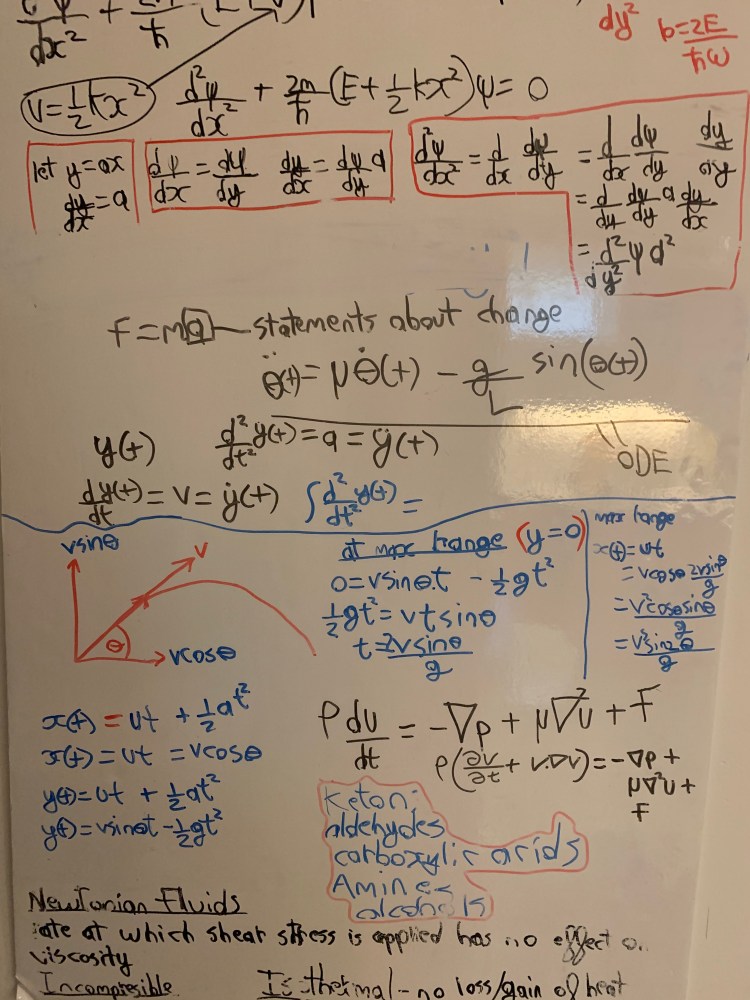 dy² b=2E/ħω
dx² + /ħ
V=½kx² d²ψ/dx² + 2m/ħ (E+½kx²)ψ= 0
let y=ax
dy/dx=a
dψ/dx = dψ/dy dy/dx = dψ/dy a
d²ψ/dx² = d/dx dψ/dy = d/dx dψ/dy dy/dy
= d/dy dψ/dy a dy/dx
= d²/dy² ψ a²
F=ma — statements about change
θ̈(t)= μθ̇(t) - g/L sin(θ(t))
ODE
y(t) d²/dt² y(t)=a=ÿ(t)
dy(t)/dt = v = ẏ(t) ∫d²/dt² y(t)=
vsinθ
v
θ
vcosθ
at max range (y=0)
0=vsinθ.t - ½gt²
½gt²=vtsinθ
t=2vsinθ/g
max range
x(t)=ut
=vcosθ 2vsinθ/g
=v²2cosθsinθ/g
=v²sin2θ/g
x(t)=ut +½at²
x(t)=ut =vcosθ
y(t)=ut +½at²
y(t)=vsinθt-½gt²
ρ du/dt = -∇p + μ∇²u + F
ρ(∂v/∂t + v.∇v)=-∇p +
μ∇²u +
F
Keton
aldehydes
carboxylic acids
Amines
alcohols
Newtonian Fluids
ate at which shear stress is applied has no effect o
viscosity
Incompresible Isothermal - no loss/gain of heat